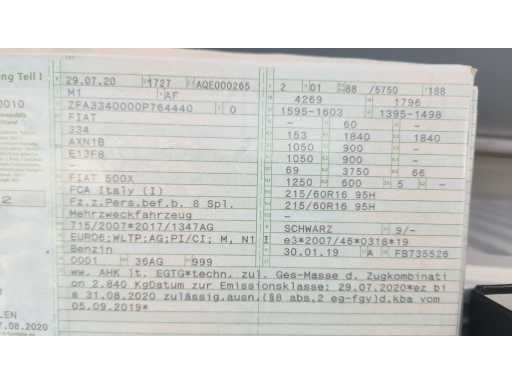 ng Teil I
0010
2
LEN
7.08.2020
29.07.20 1727 AQE000265 2 01 88 /5750 188
M1 AF 4269 1796
ZFA3340000P764440 0 1595-1603 1395-1498
FIAT - 60 -
334 153 1840 1840
AXN1B 1050 900 -
E13FB 1050 900 -
- 69 3750 66
FIAT 500X 1250 600 5 -
FCA Italy (I) 215/60R16 95H
Fz.z.Pers.bef.b. 8 Spl. 215/60R16 95H
Mehrzweckfahrzeug -
715/2007*2017/1347AG SCHWARZ 9/-
EURO6;WLTP;AG;PI/CI; M, N1 I e3*2007/46*0318*19
Benzin 30.01.19 A FB735526
0001 36AG 999
ww. AHK lt. EGTG*techn. zul. Ges-Masse d. Zugkombinati
on 2.840 KgDatum zur Emissionsklasse: 29.07.2020*ez bi
s 31.08.2020 zulässig.ausn.(§8 abs.2 eg-fgv)d.kba vom
05.09.2019*